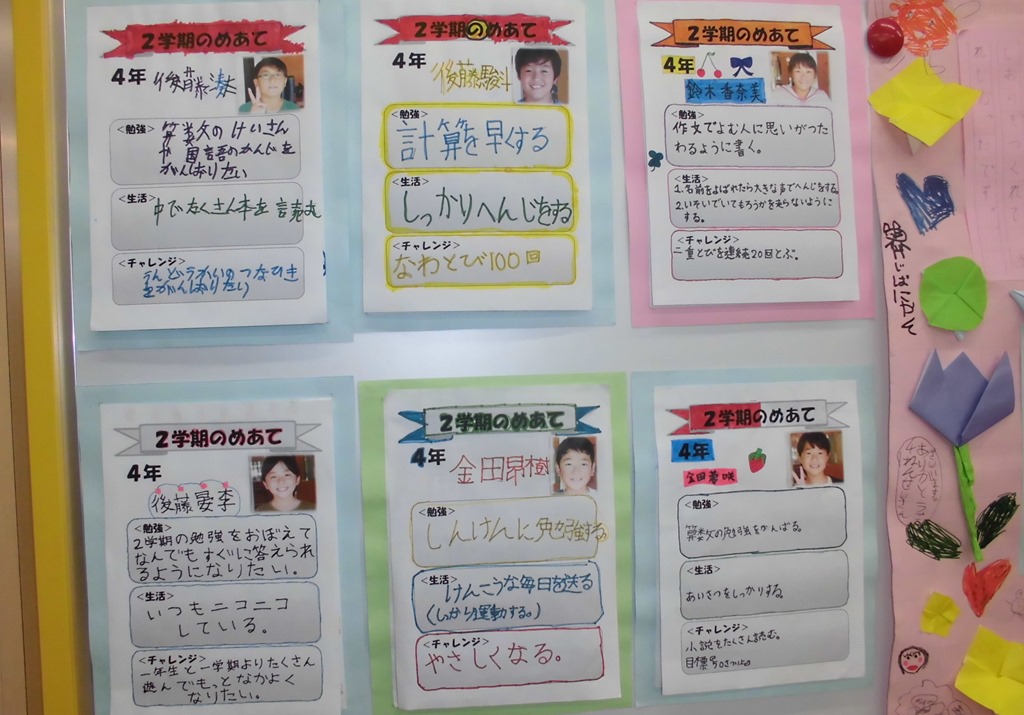 2学期のめあて
4年
後藤湊
<勉強>
算数の けいさん
や 国語のかんじを
がんばりたい
<生活>
中でたくさん本を 読む
<チャレンジ>
うんどうかいの つなひき
をがんばりたい
2学期のめあて
4年
後藤駿斗
<勉強>
計算を早くする
<生活>
しっかりへんじをする
<チャレンジ>
なわとび100回
2学期のめあて
4年
鈴木香奈美
<勉強>
作文でよむ人に思いがつた
わるように書く。
<生活>
1.名前をよばれたら大きな声でへんじをする
2.いそいでいてもろうかを走らないように
する。
<チャレンジ>
二重とびを連続20回とぶ。
2学期のめあて
4年
後藤晏李
<勉強>
2学期の勉強をおぼえて
なんでもすぐに答えられ
るようになりたい。
<生活>
いつもニコニコ
している。
<チャレンジ>
一年生と一学期よりたくさん
遊んでもっとなかよく
なりたい。
2学期のめあて
4年
金田昂樹
<勉強>
しんけんに勉強する
<生活>
けんこうな毎日を送る
(しっかり運動する。)
<チャレンジ>
やさしくなる。
2学期のめあて
4年
金田夢咲
<勉強>
算数の勉強をがんばる。
<生活>
あいさつをしっかりする。
<チャレンジ>
小説をたくさん読む。
目標
ありがとう